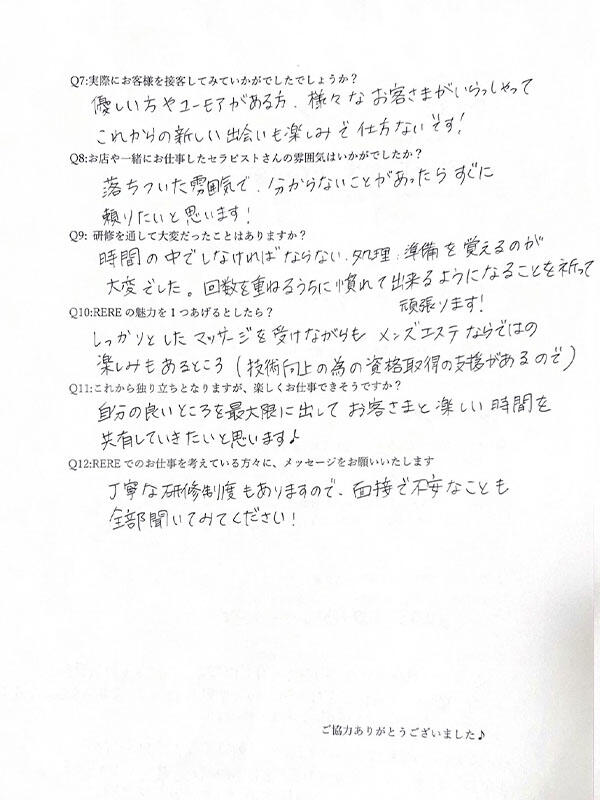 Q7:実際にお客様を接客してみていかがでしたでしょうか？
優しい方やユーモアがある方、様々なお客さまがいらっしゃって
これからの新しい出会いも楽しみで仕方ないです！
Q8:お店や一緒にお仕事したセラピストさんの雰囲気はいかがでしたか？
落ちついた雰囲気で、分からないことがあったらすぐに
頼りたいと思います！
Q9: 研修を通して大変だったことはありますか？
時間の中でしなければならない、処理、準備を覚えるのが
大変でした。回数を重ねるうちに慣れて出来るようになることを祈って
頑張ります！
Q10:REREの魅力を１つあげるとしたら？
しっかりとしたマッサージを受けながらも メンズエステならではの
楽しみもあるところ（技術向上の為の資格取得の支援があるので）
Q11:これから独り立ちとなりますが、楽しくお仕事できそうですか？
自分の良いところを最大限に出してお客さまと楽しい時間を
共有していきたいと思います♪
Q12:REREでのお仕事を考えている方々に、メッセージをお願いいたします
丁寧な研修制度もありますので、面接で不安なことも
全部聞いてみてください！
ご協力ありがとうございました♪